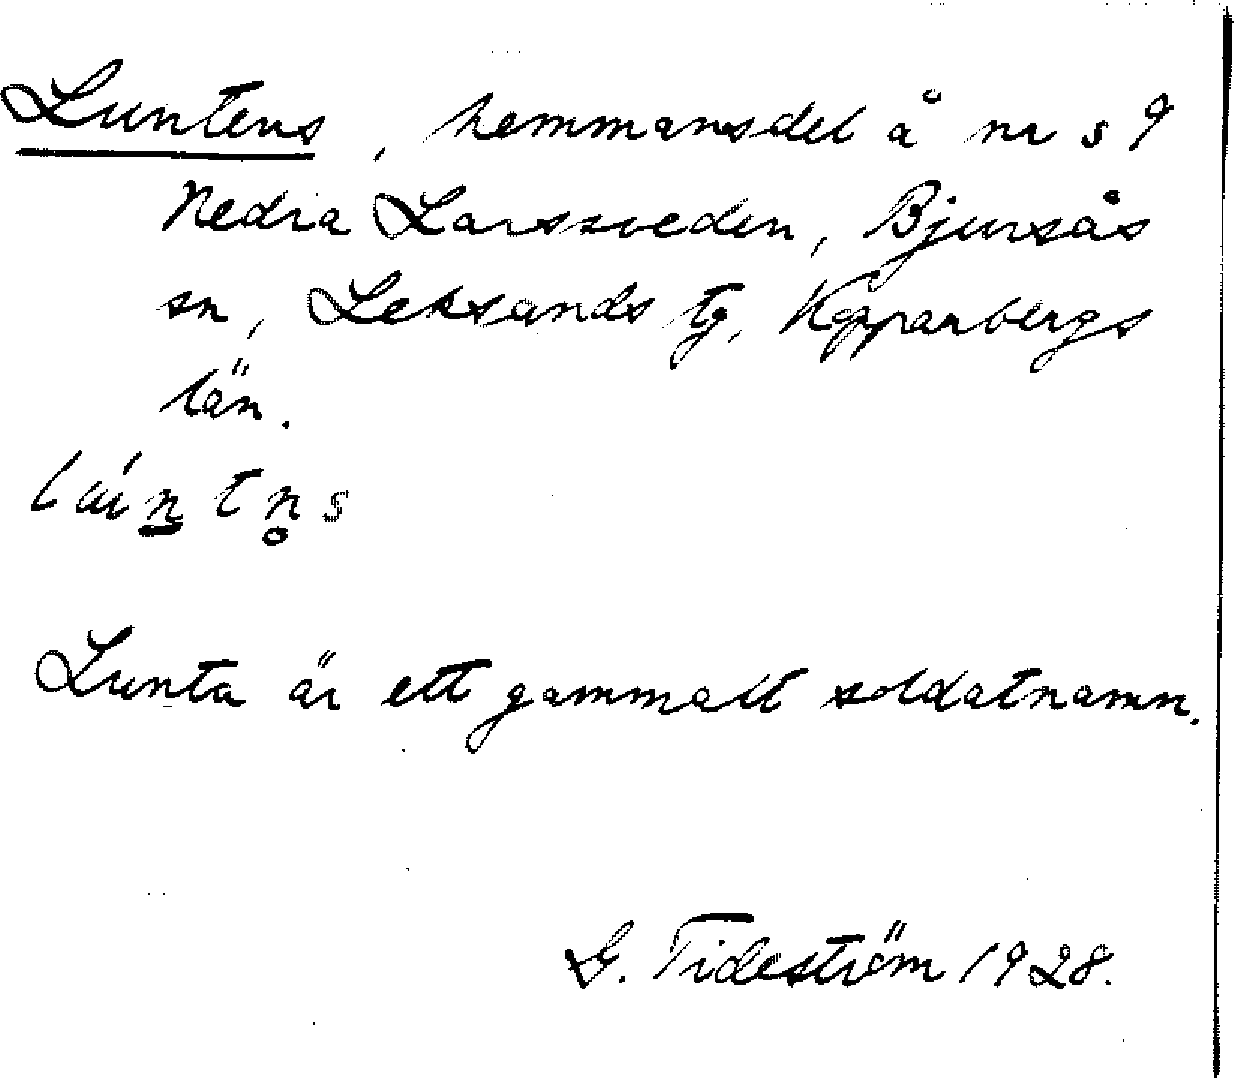 Luntens, hemmansdel å nr s 9
Nedra Larssveden, Bjursås
sn, Leksands tg, Kopparbergs
län.
lúṉtn̥s
Lunta är ett gammalt soldatnamn.
G. Tideström 1928.